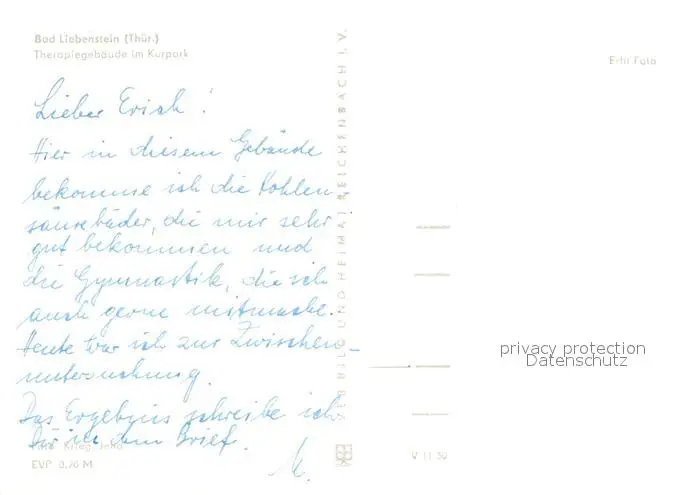 Bad Liebenstein (Thür.)
Therapiegebäude im Kurpark
Echt Foto
Lieber Erich!
Hier in diesem Gebäude
bekomme ich die Kohlen-
säurebäder, die mir sehr
gut bekommen und
die Gymnastik, die ich
auch gerne mitmache.
Heute war ich zur Zwischen-
untersuchung.
Das Ergebnis schreibe ich
Dir in dem Brief.
BILD UND HEIMAT REICHENBACH I. V.
privacy protection
Datenschutz
Foto: Krieg, Jena
EVP 0,20 M
V 11 50